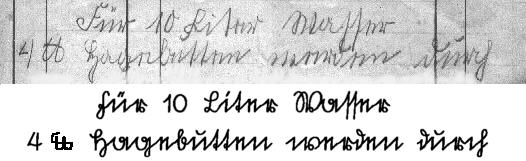 Für 10 Liter Wasser
4 ℔ Hagebutten werden durch
Für 10 Liter Wasser
4 ℔ Hagebutten werden durch